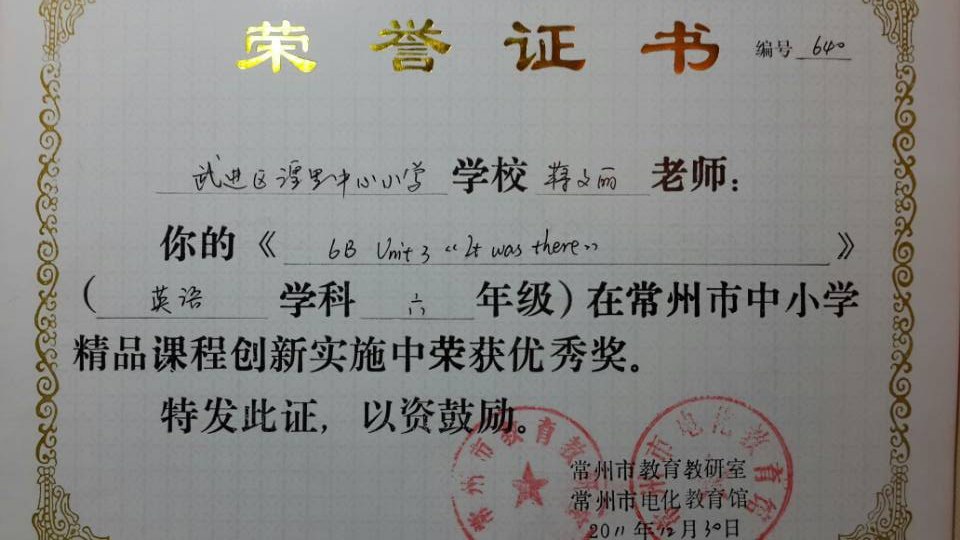 荣誉证书
编号 640
武进区湟里中心小学学校 蒋文丽 老师：
你的《 6B Unit 3 “It was there” 》
（ 英语 学科 六 年级）在常州市中小学
精品课程创新实施中荣获优秀奖。
特发此证，以资鼓励。
常州市教育教研室
常州市电化教育馆
2011年12月30日